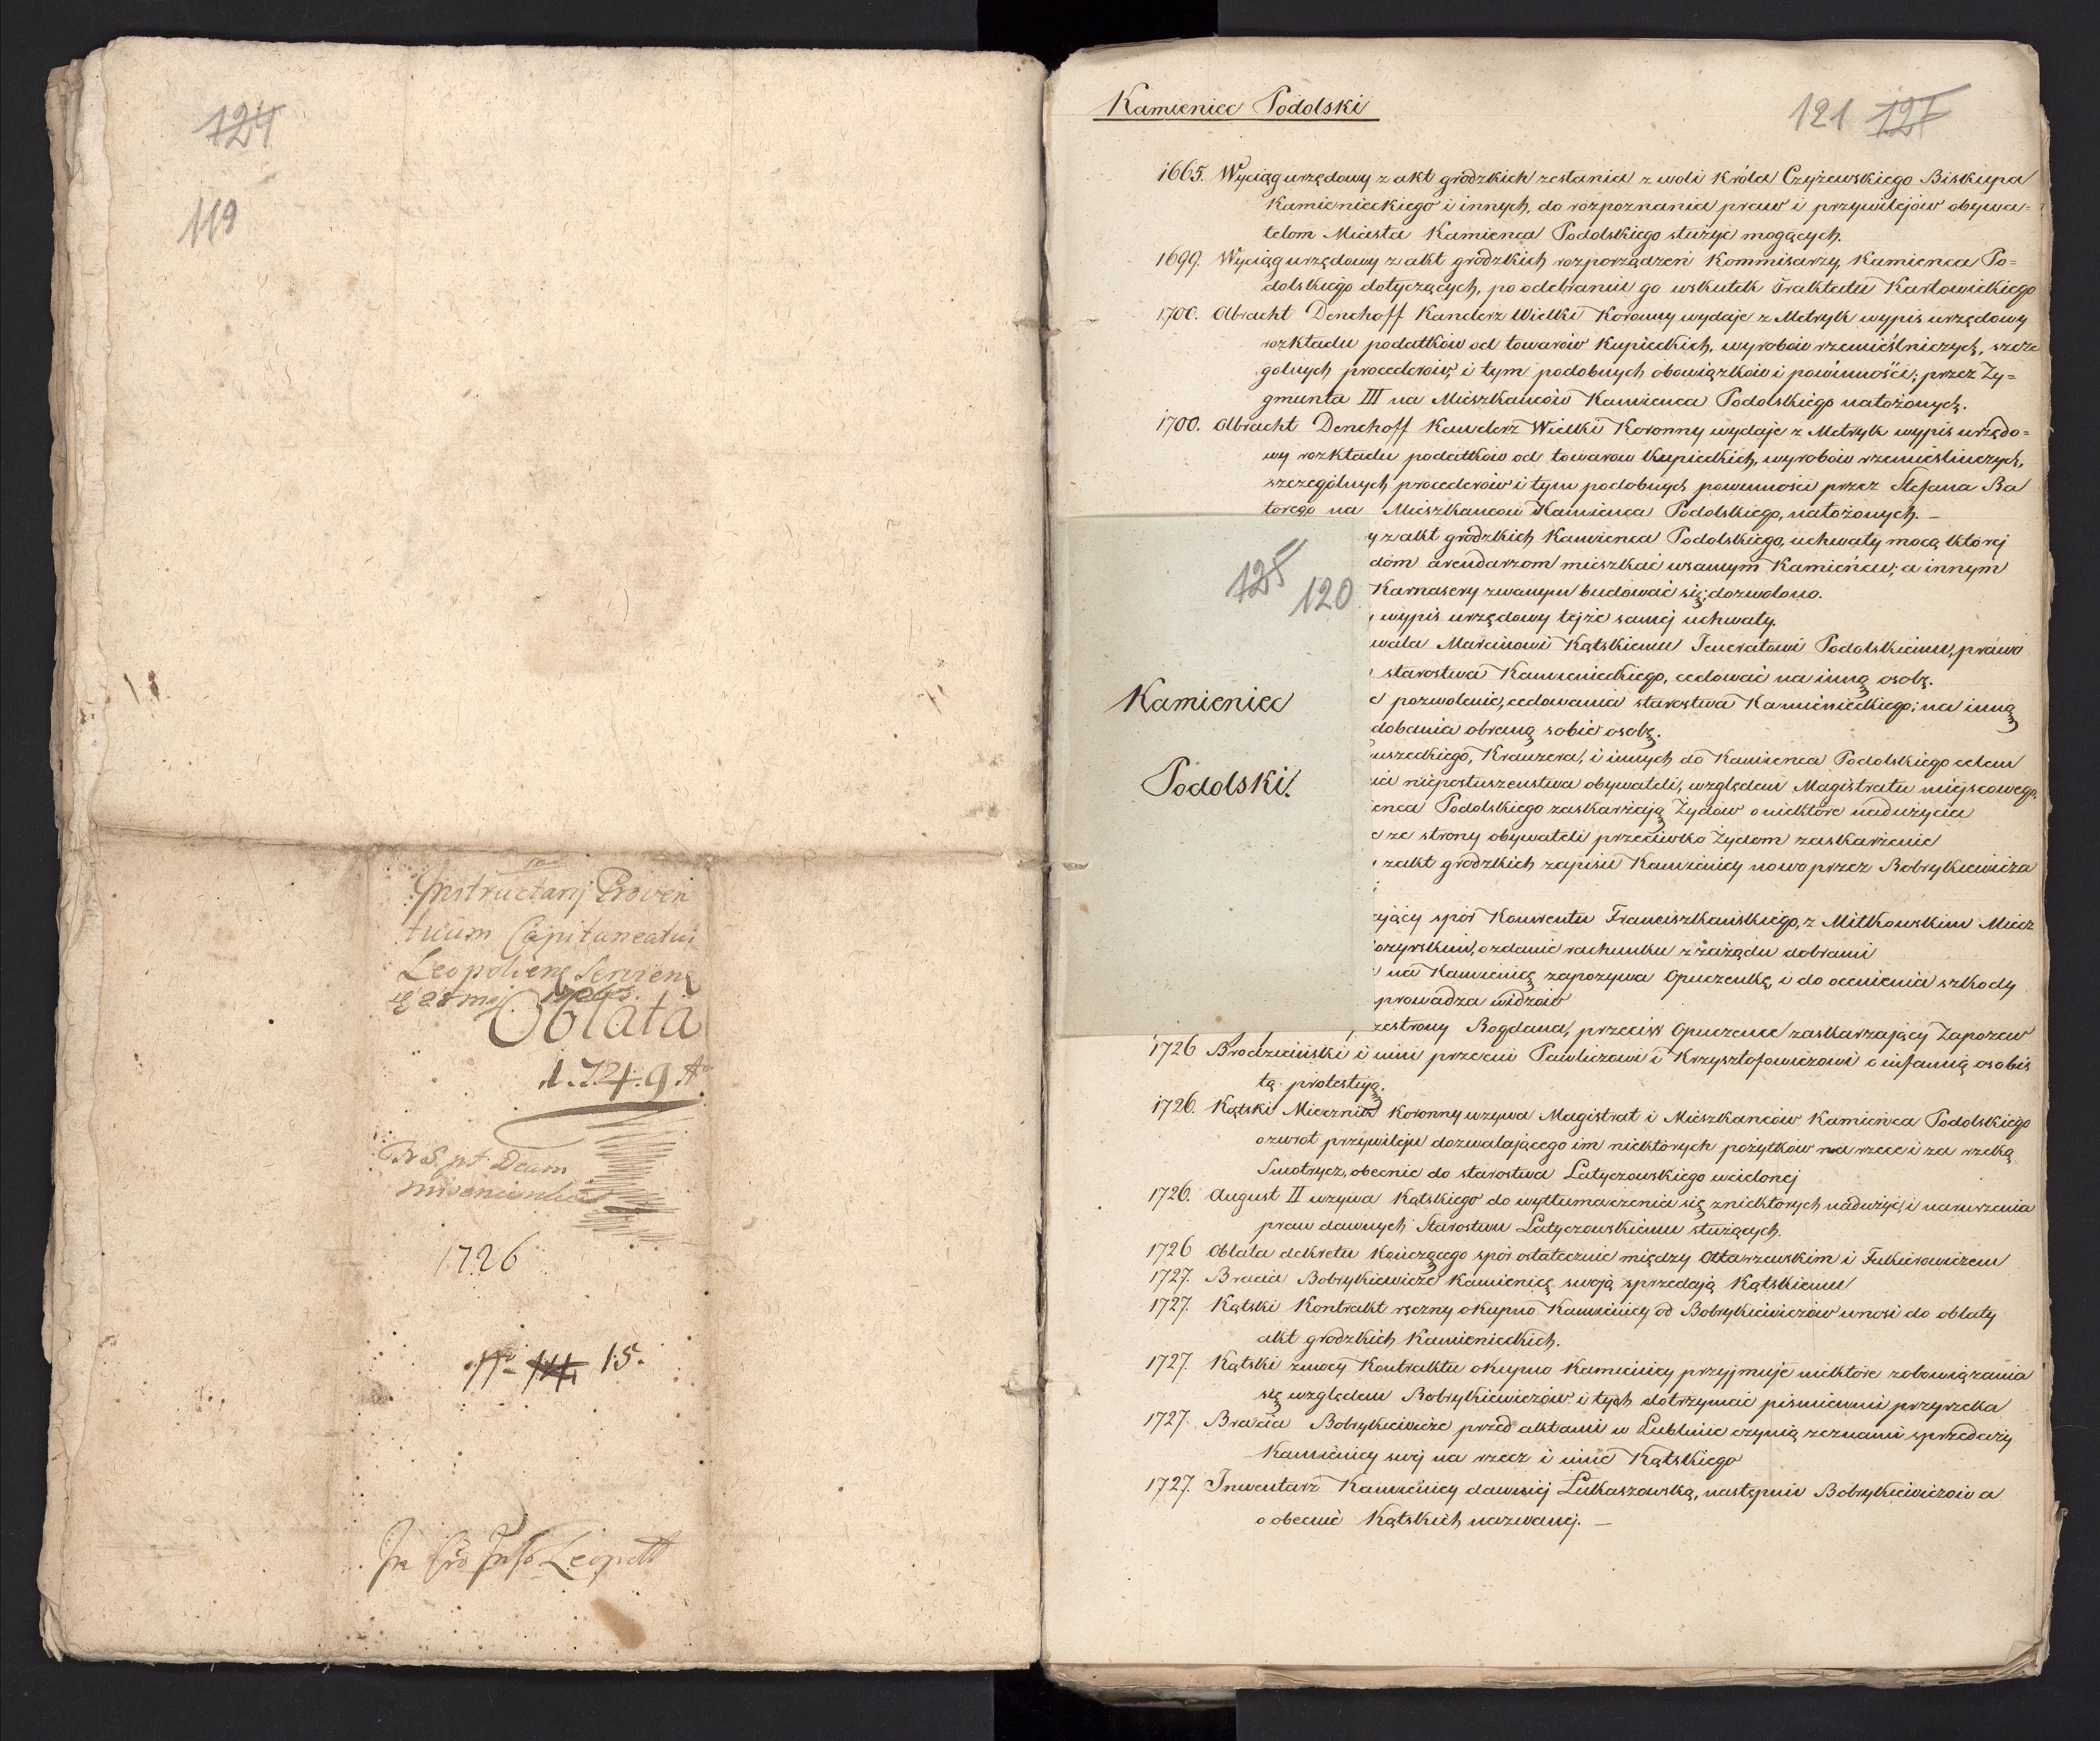 124
119
Instructarij Proven
tuum Capitaneatui
Leopoliens Serviens
Oblata
1.7.4.9.
1726
15.
Kamieniec Podolski
121 127
1665. Wyciąg urzędowy z akt grodzkich zesłania z woli Króla Czyżewskiego Biskupa
Kamienieckiego i innych, do rozpoznania praw i przywilejów obywa=
telom Miasta Kamienca Podolskiego służyć mogących.
1699. Wyciąg urzędowy z akt grodzkich rozporządzeń Kommisarzy, Kamienca Po=
dolskiego dotyczących, po odebraniu go wskutek Traktatu Karłowickiego
1700. Olbracht Denchoff Kanclerz Wielki Koronny wydaje z Metryk wypis urzędowy
rozkładu podatków od towarów kupieckich, wyrobów rzemieślniczych, szcze
golnych procederów, i tym podobnych obowiązków i powinności; przez Zy=
gmunta III na Mieszkańców Kamienca Podolskiego nałożonych.
1700. Olbracht Denchoff Kanclerz Wielki Koronny wydaje z Metryk wypis urzędo=
wy rozkładu podatków od towarow kupieckich, wyrobów rzemieslniczych,
szczególnych procederów i tym podobnych powinności przez Stefana Ba
torego na Mieszkancow Kamienca Podolskiego, nałożonych. —
y z akt grodzkich Kamienca Podolskiego, uchwały mocą której
dom arendarzom mieszkać w samym Kamieńcu; a innym
Karnasery zwanym budować się; dozwolono.
wypis urzędowy tejże samej uchwały.
wala Marcinowi Kątskiemu Jenerałowi Podolskiemu, prawo
starostwa Kamienieckiego, cedować na inną osobę.
e pozwolenie, cedowania starostwa Kamienieckiego; na inną
dobania obraną sobie osobę.
uszeckiego, Krauzera, i innych do Kamienca Podolskiego celem
ia nieposłuszenstwa obywateli, względem Magistratu miejscowego.
enca Podolskiego zaskarżają Żydów o niektóre nadużycia
e ze strony obywateli przeciwko Żydom zaskarżenie
z akt grodzkich zapisu Kamienicy nowo przez Bobrykiewicza
ający spór Konwentu Franciszkańskiego, z Mitkowskim Miecz
ozyrskim, o zdanie rachunku z zarządu dobrami
na Kamienicę zapozywa Opuczenkę, i do ocenienia szkody
prowadza widzów
ze strony Bogdana, przeciw Opuczence zaskarzający Zapozew
125 120
Kamieniec
Podolski.
1726 Brodzieiński i inni przeciw Pawliczowi i Krzysztofowiczowi o infamią osobis
tą protestują.
1726. Kątski Miecznik Koronny wzywa Magistrat i Mieszkanców Kamieńca Podolskiego
o zwrot przywileju dozwalającego im niektórych pożytków na rzece i za rzeką
Smotrycz, obecnie do starostwa Latyczowskiego wcielonej
1726. August II wzywa Kątskiego do wytłumaczenia się z niektórych nadużyć, i naruszenia
praw dawnych Starostwu Latyczowskiemu służących.
1726 Oblata dekretu kończącego spór ostatecznie między Ołtarzewskim i Fukierowiczem
1727. Bracia Bobrykiewicze Kamienicę swoją sprzedają Kątskiemu
1727. Kątski Kontrakt ręczny o kupno Kamienicy od Bobrykiewiczów wnosi do oblaty
akt grodzkich Kamienieckich.
1727. Kątski z mocy Kontraktu o kupno Kamienicy przyjmuje niektóre zobowiązania
się względem Bobrykiewiczów i tych dotrzymać piśmiennie przyrzeka
1727. Bracia Bobrykiewicze przed aktami w Lublinie czynią zeznanie sprzedaży
Kamienicy swej na rzecz i imie Kątskiego
1727. Inwentarz Kamienicy dawniej Łukaszowską, następnie Bobrykiewiczów a
o obecnie Kątskich nazwanej. —